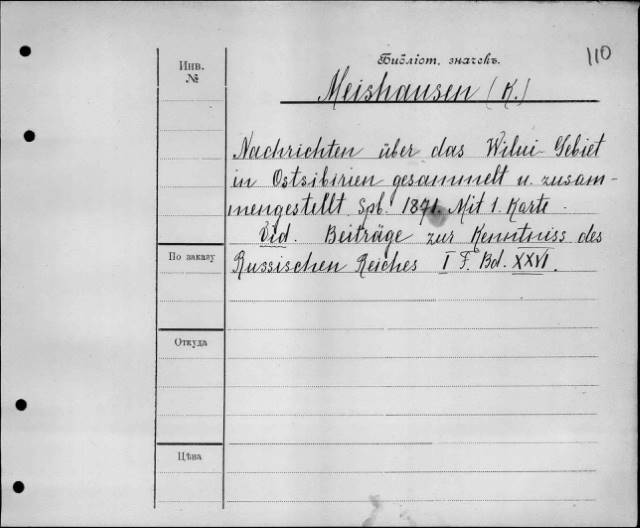 110
Библіот. значекъ.
Инв.
№
Meishausen (K.)
Nachrichten über das Wilui-Gebiet
in Ostsibirien gesammelt u. zusam-
mengestellt. Spb. 1871. Mit 1. Karte.
Vid. Beiträge zur Kenntniss des
Russischen Reiches I F. Bd. XXVI.
По заказу
Откуда
Цѣна